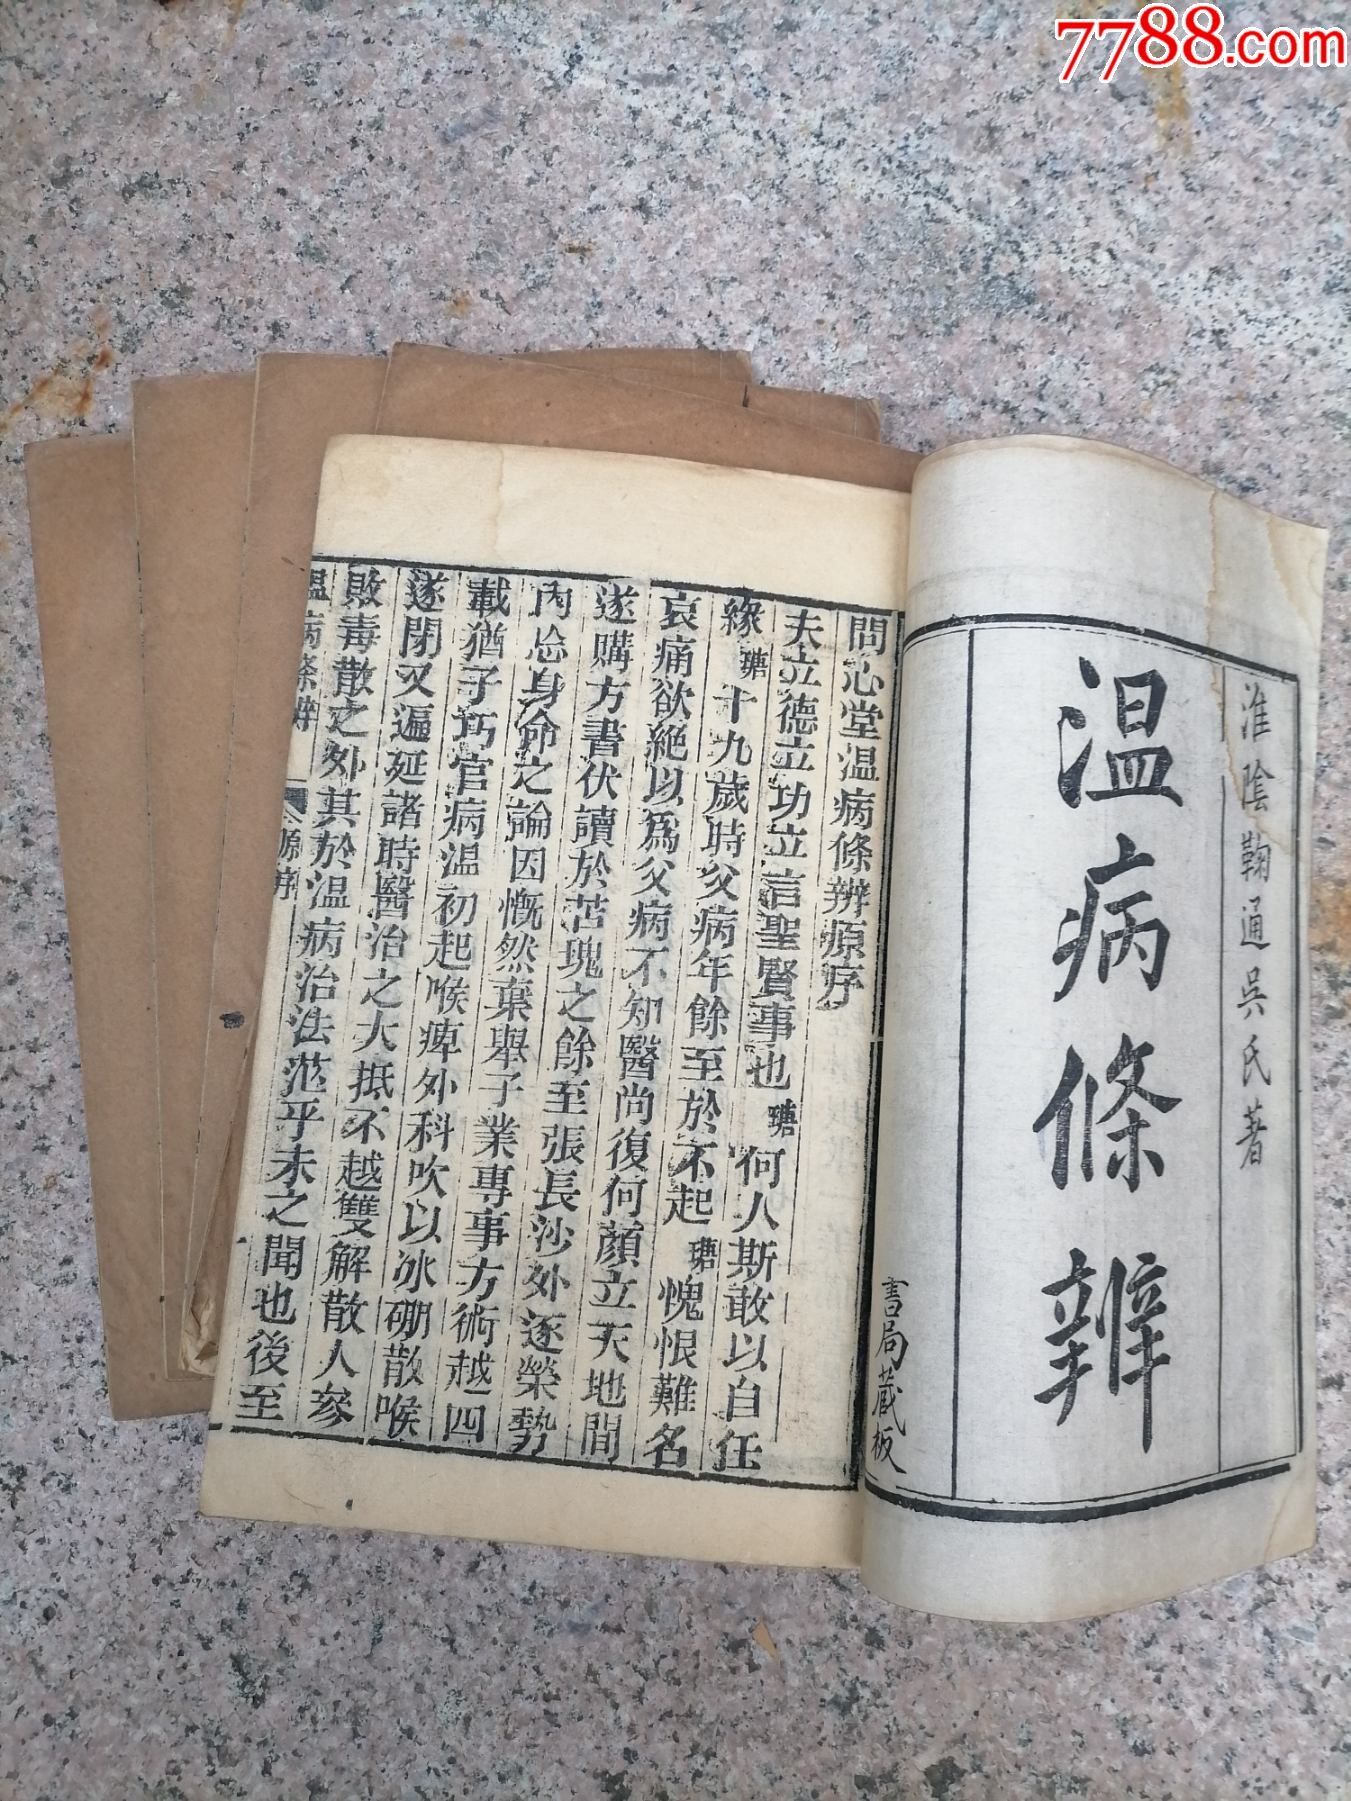 7788.com
淮陰鞠通吳氏著
温病條辨
書局藏板
問心堂温病條辨原序
夫立德立功立言聖賢事也瑭何人斯敢以自任
緣瑭十九歲時父病年餘至於不起瑭愧恨難名
哀痛欲絶以爲父病不知醫尚復何顏立天地間
遂購方書伏讀於苫塊之餘至張長沙外逐榮勢
内忘身命之論因慨然棄舉子業專事方術越四
載猶子巧官病温初起喉痺外科吹以冰硼散喉
遂閉又遍延諸時醫治之大抵不越雙解散人參
敗毒散之外其於温病治法茫乎未之聞也後至
温病條辨
原序
一